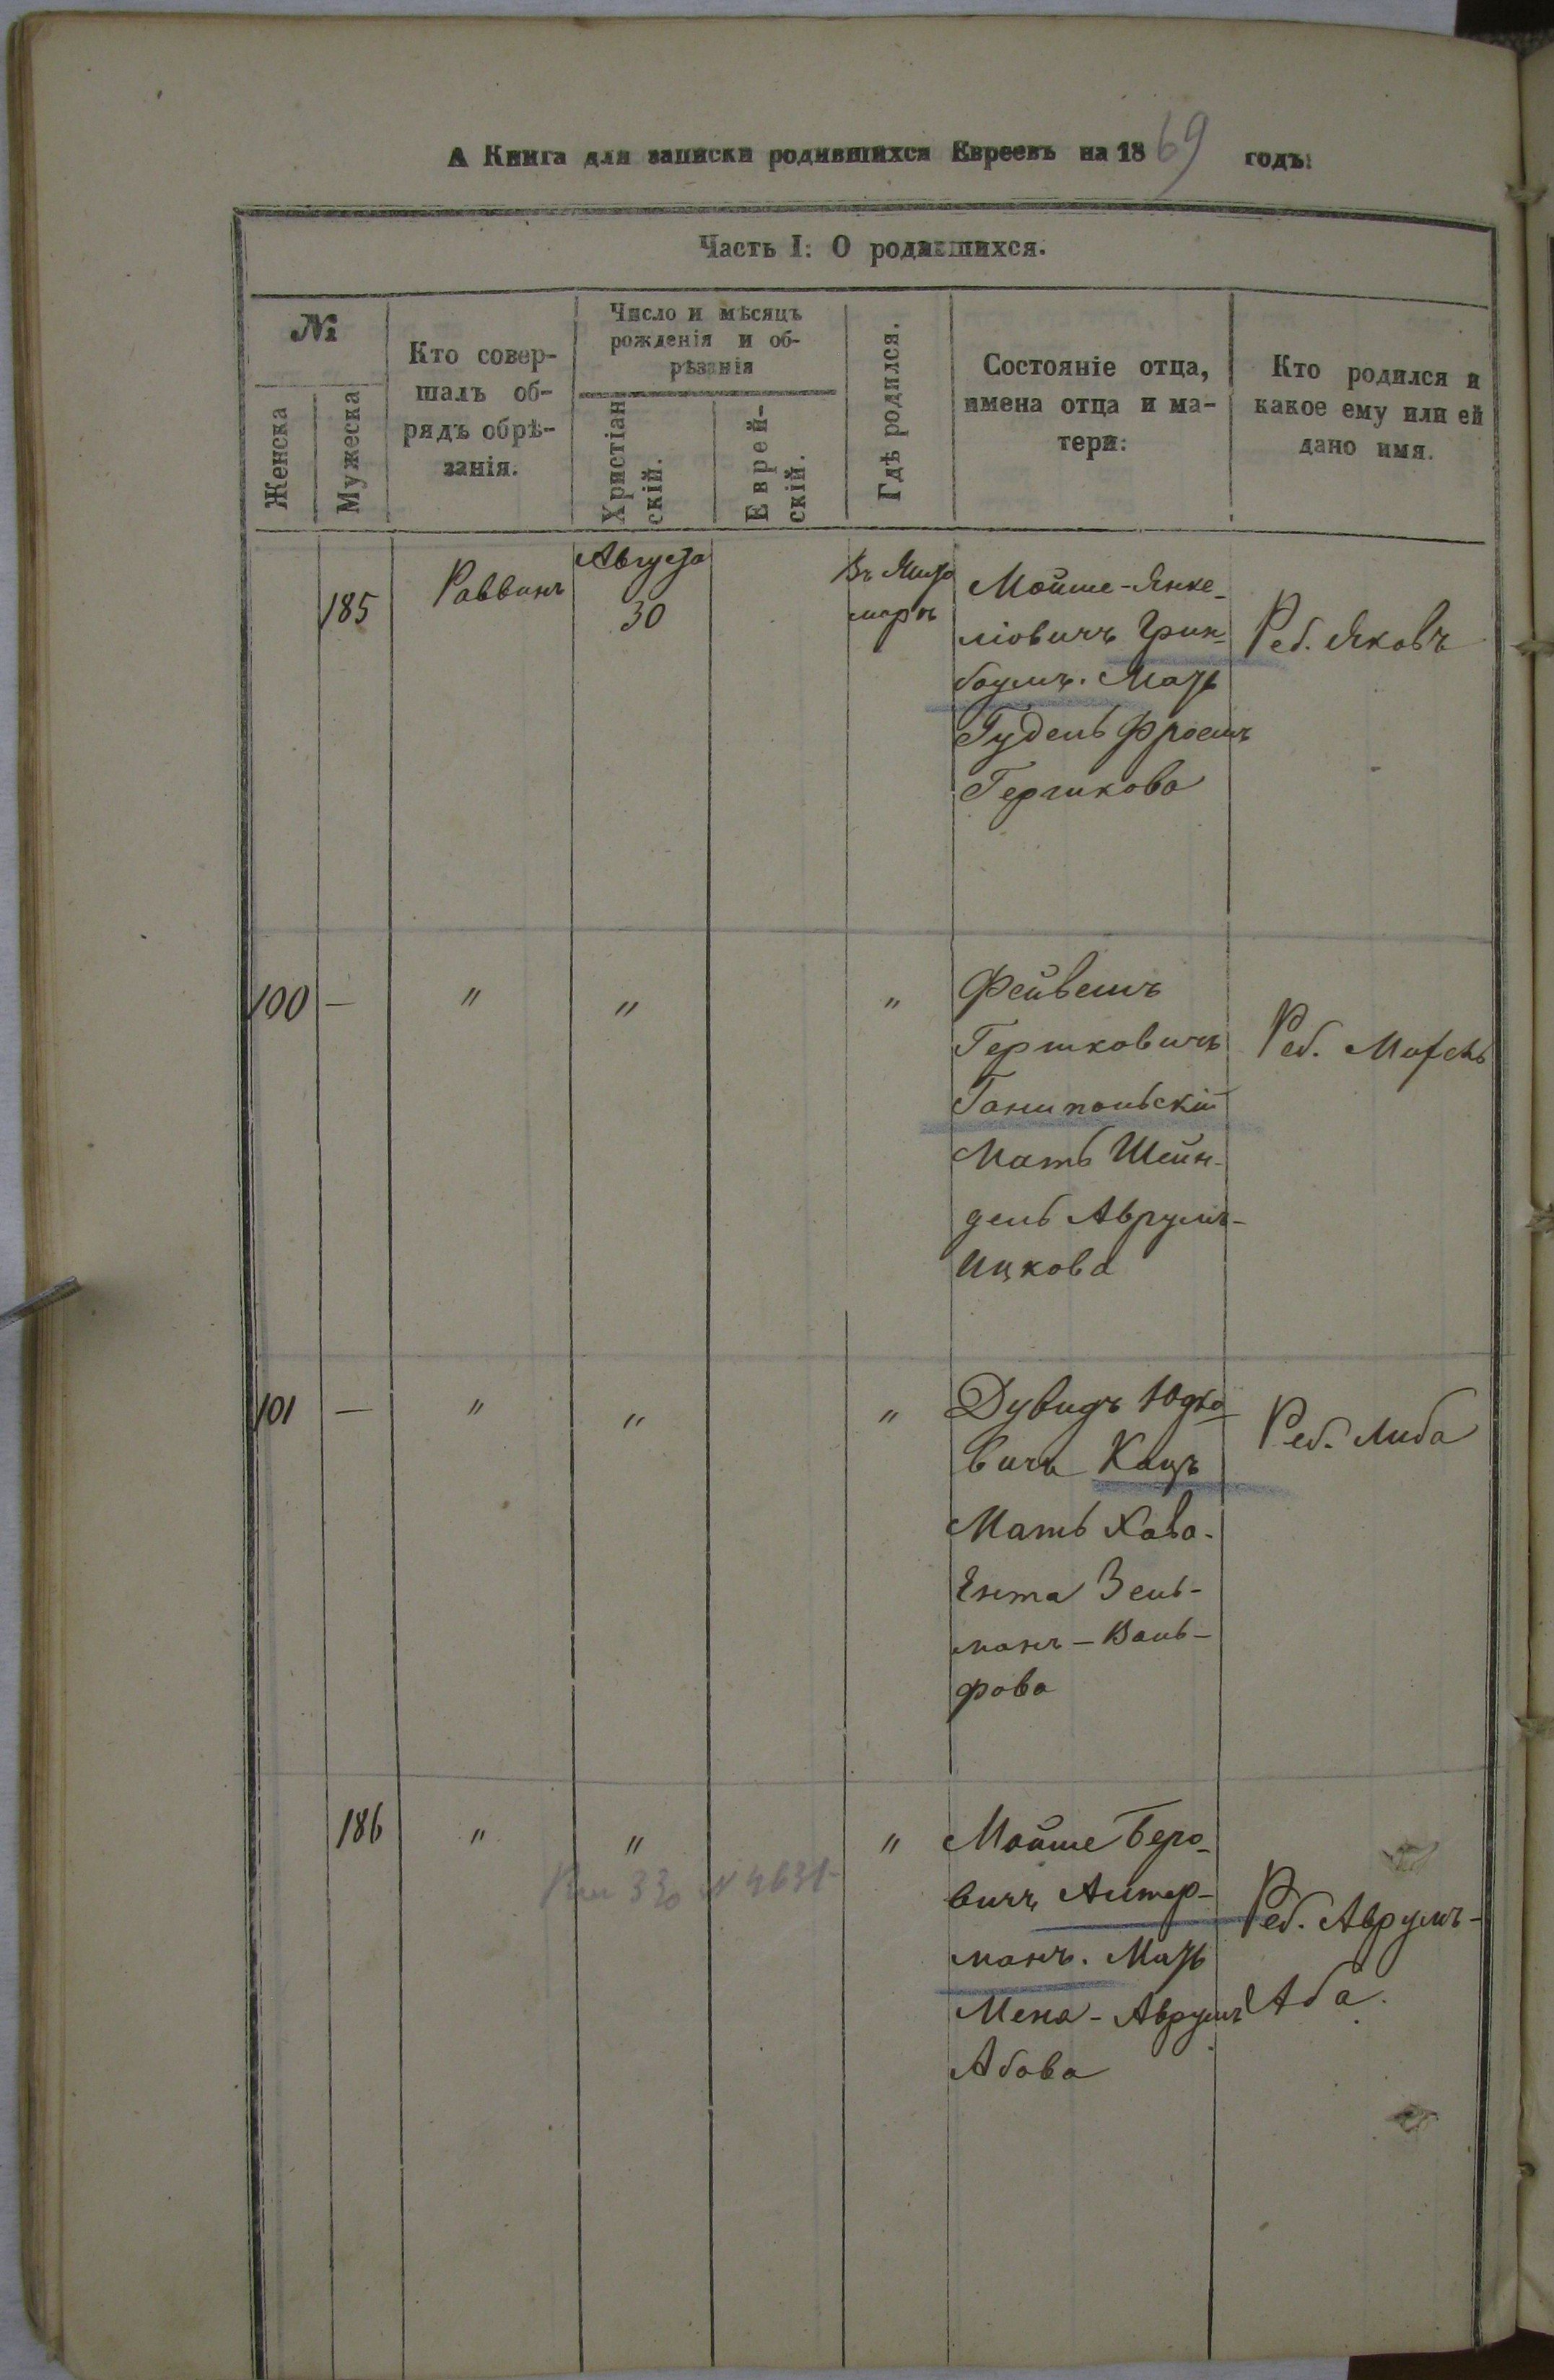 А Книга для записки родившихся Евреевъ на 1869 годъ:
Часть I: О родившихся.
№
Женска
Мужеска
Кто совер-
шалъ об-
рядъ обрѣ-
занія.
Число и мѣсяцъ
рожденія и об-
рѣзанія
Христіан
скій.
Еврей-
скій.
Гдѣ родился.
Состояніе отца,
имена отца и ма-
тери:
Кто родился и
какое ему или ей
дано имя.
185
Раввинъ
Августа
30
Въ Жито
мирѣ
Мойше-Янке-
ліовичъ Грин-
баумъ. Мать
Гудель Фроим
Гершкова
Реб. Яковъ
100 —
"
"
"
Фейвешъ
Гершковичъ
Ганипольскій
Мать Шейн-
дель Аврумъ-
Ицкова
Реб.
101 —
"
"
"
Дувидъ Юдко
вичъ Кацъ
Мать Хава-
Ента Зель-
манъ - Воль-
фова
Реб. Либа
186
"
"
"
Мойше Беро-
вичъ Алтер-
манъ. Мать
Мена - Аврумъ
Абова
Реб. Аврумъ-
Аба.